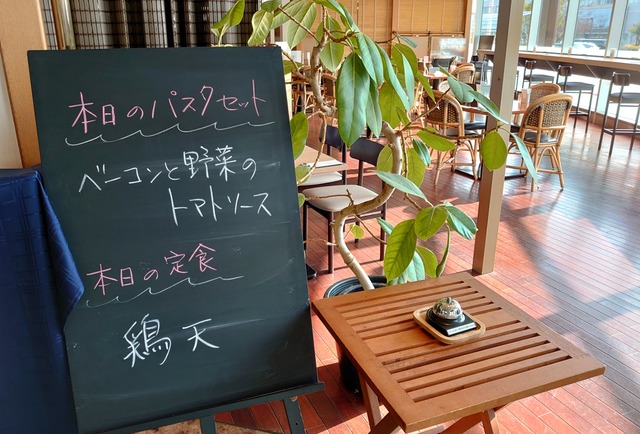 本日のパスタセット
ベーコンと野菜の
トマトソース
本日の定食
鶏天